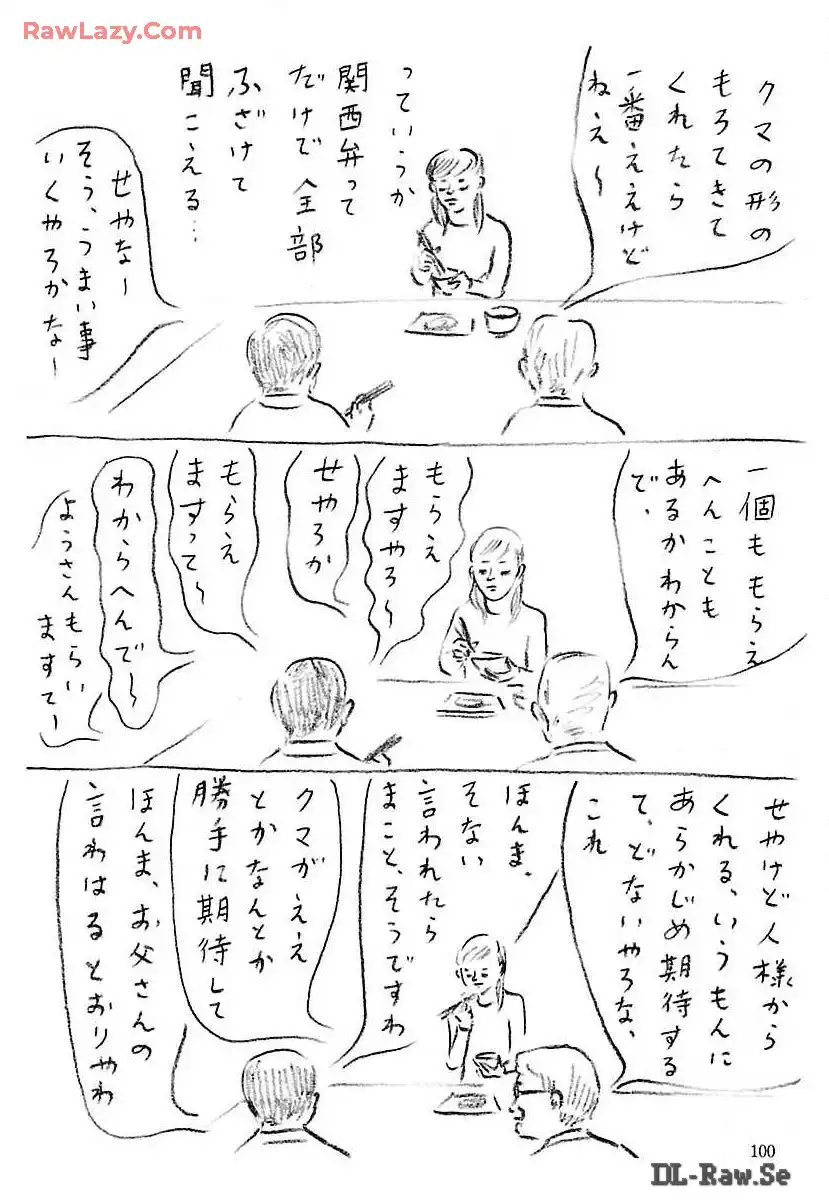 RawLazy.Com
クマの形の
もろてきて
くれたら
一番ええけど
ねえ〜
っていうか
関西弁って
だけで全部
ふざけて
聞こえる…
せやなー
そう、うまい事
いくやろかなー
一個ももらえ
へんことも
あるかわからん
で、
もらえ
ますやろ〜
せやろか
もらえ
ますって〜
わからへんで〜
ようさんもらい
ますて〜
せやけど人様から
くれる、いうもんに
あらかじめ期待する
て、どないやろな、
これ
ほんま、
そない
言われたら
まこと、そうですわ
クマがええ
とかなんとか
勝手に期待して
ほんま、お父さんの
言わはるとおりやわ
100
DL-Raw.Se